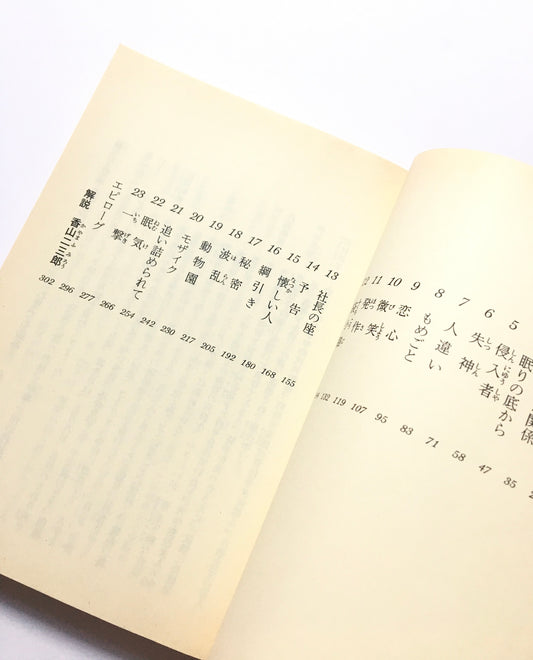 関係
眠りの底から 47
5 侵入者 58
6 失神 71
7 人違い 83
8 もめごと 95
9 恋心 107
10 微笑 119
11 発作 132
13 社長の座 155
14 予告 168
15 懐しい人 180
16 綱引き 192
17 秘密 205
18 波乱 217
19 動物園 230
20 モザイク 242
21 追い詰められて 254
22 眠気 266
23 一撃 277
エピローグ 296
解説 香山二三郎 302